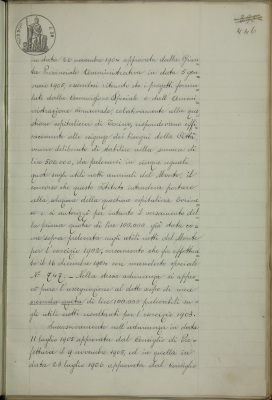 446
in data 20 novembre 1904 approvata dalla Giun-
ta Provinciale Amministrativa in data 5 gen
naio 1905, essendosi ritenuto che i progetti formu
lati dalla Commissione Speciale e dall'Ammi-
nistrazione Comunale, relativamente alla que
stione ospitaliera di Torino, rispondevano effi-
cacemente alle esigenze dei bisogni della Città
venne deliberato di stabilire nella somma di
lire 500.000, da prelevarsi in cinque eguali
quote sugli utili netti annuali del Monte, il
concorso che questo Istituto intendeva portare
alla soluzione della questione ospitaliera torine
se, e si autorizzò per intanto il versamento del
la prima quota di lire 100.000 già data co-
me sopra prelevata sugli utili netti del Monte
per l'esercizio 1903; versamento che fu effettua
to il 16 dicembre 1904 con mandato speciale
N. 747. - Nella stessa adunanza si appro
vò pure l'assegnazione al detto scopo di una
seconda quota di lire 100.000 prelevabili su
gli utili netti risultanti per l'esercizio 1904.
Successivamente nell'adunanza in data
11 luglio 1905 approvata dal Consiglio di Pre
fettura il 9 novembre 1905, ed in quella in
data 23 luglio 1906 approvata dal Consiglio